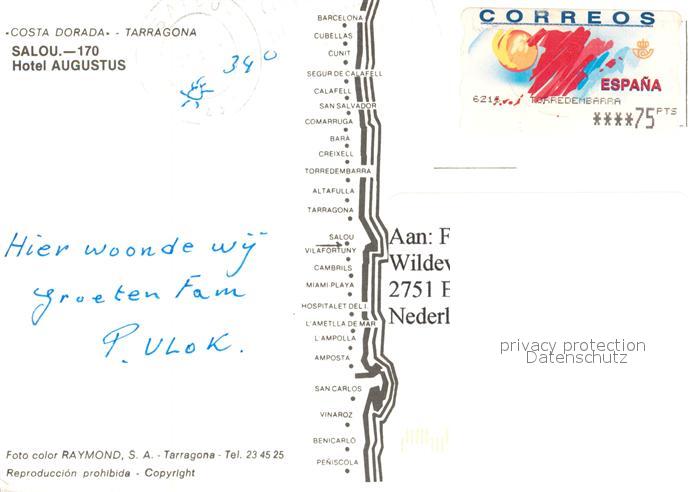 «COSTA DORADA» - TARRAGONA
SALOU.—170
Hotel AUGUSTUS
34°
Hier woonde wij
groeten Fam
P. VLOK.
Foto color RAYMOND, S. A. - Tarragona - Tel. 23 45 25
Reproducción prohibida - Copyright
BARCELONA
CUBELLAS
CUNIT
SEGUR DE CALAFELL
CALAFELL
SAN SALVADOR
COMARRUGA
BARÁ
CREIXELL
TORREDEMBARRA
ALTAFULLA
TARRAGONA
SALOU
VILAFORTUNY
CAMBRILS
MIAMI-PLAYA
HOSPITALET DEL I.
L'AMETLLA DE MAR
L'AMPOLLA
AMPOSTA
SAN CARLOS
VINAROZ
BENICARLO
PEÑISCOLA
CORREOS
ESPAÑA
TORREDEMBARRA
****75 PTS
Aan: F
Wildev
2751 E
Nederl
privacy protection
Datenschutz